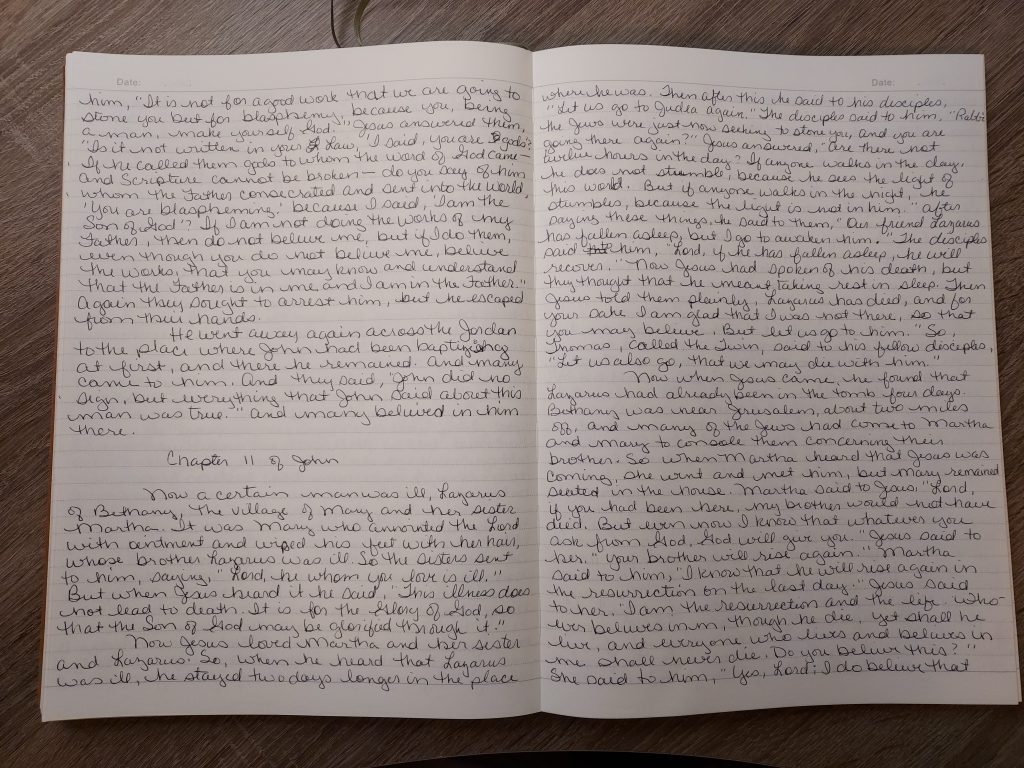 Date:
him, "It is not for a good work that we are going to
stone you but for blasphemy, because you, being
a man, make yourself God." Jesus answered them,
"Is it not written in your Law, 'I said, you are gods'?
If he called them gods to whom the word of God came —
and Scripture cannot be broken — do you say of him
whom the Father consecrated and sent into the world,
'You are blaspheming.' because I said, 'I am the
Son of God'? If I am not doing the works of my
Father, then do not believe me, but if I do them,
even though you do not believe me, believe
the works, that you may know and understand
that the Father is in me and I am in the Father."
Again they sought to arrest him, but he escaped
from their hands.
He went away again across the Jordan
to the place where John had been baptizing
at first, and there he remained. And many
came to him. And they said, "John did no
sign, but everything that John said about this
man was true." and many believed in him
there.
Chapter 11 of John
Now a certain man was ill, Lazarus
of Bethany, the village of Mary and her sister
Martha. It was Mary who annointed the Lord
with ointment and wiped his feet with her hair,
whose brother Lazarus was ill. So the sisters sent
to him, saying, "Lord, he whom you love is ill."
But when Jesus heard it he said, "This illness does
not lead to death. It is for the Glory of God, so
that the Son of God may be glorified through it."
Now Jesus loved Martha and her sister
and Lazarus. So, when he heard that Lazarus
was ill, he stayed two days longer in the place
Date:
where he was. Then after this he said to his disciples,
"Let us go to Judea again." The disciples said to him, "Rabbi,
the Jews were just now seeking to stone you, and you are
going there again?" Jesus answered, "are there not
twelve hours in the day? If anyone walks in the day,
he does not stumble, because he sees the light of
this world. But if anyone walks in the night, he
stumbles, because the light is not in him." after
saying these things, he said to them, "Our friend Lazarus
has fallen asleep, but I go to awaken him." The disciples
said him, "Lord, if he has fallen asleep, he will
recover." Now Jesus had spoken of his death, but
they thought that he meant taking rest in sleep. Then
Jesus told them plainly, Lazarus has died, and for
your sake I am glad that I was not there, so that
you may believe. But let us go to him." So,
Thomas, called the Twin, said to his fellow disciples,
"Let us also go, that we may die with him."
Now when Jesus came, he found that
Lazarus had already been in the tomb four days.
Bethany was near Jerusalem, about two miles
off, and many of the Jews had come to Martha
and Mary to console them concerning their
brother. So when Martha heard that Jesus was
coming, she went and met him, but Mary remained
seated in the house. Martha said to Jesus: "Lord,
if you had been here, my brother would not have
died. But even now I know that whatever you
ask from God, God will give you." Jesus said to
her." your brother will rise again." Martha
said to him, "I know that he will rise again in
the resurrection on the last day." Jesus said
to her. "I am the resurrection and the life. Who-
ever believes in m, though he die, yet shall he
live, and everyone who lives and believes in
me shall never die. Do you believe this?"
She said to him, "Yes, Lord; I do believe that